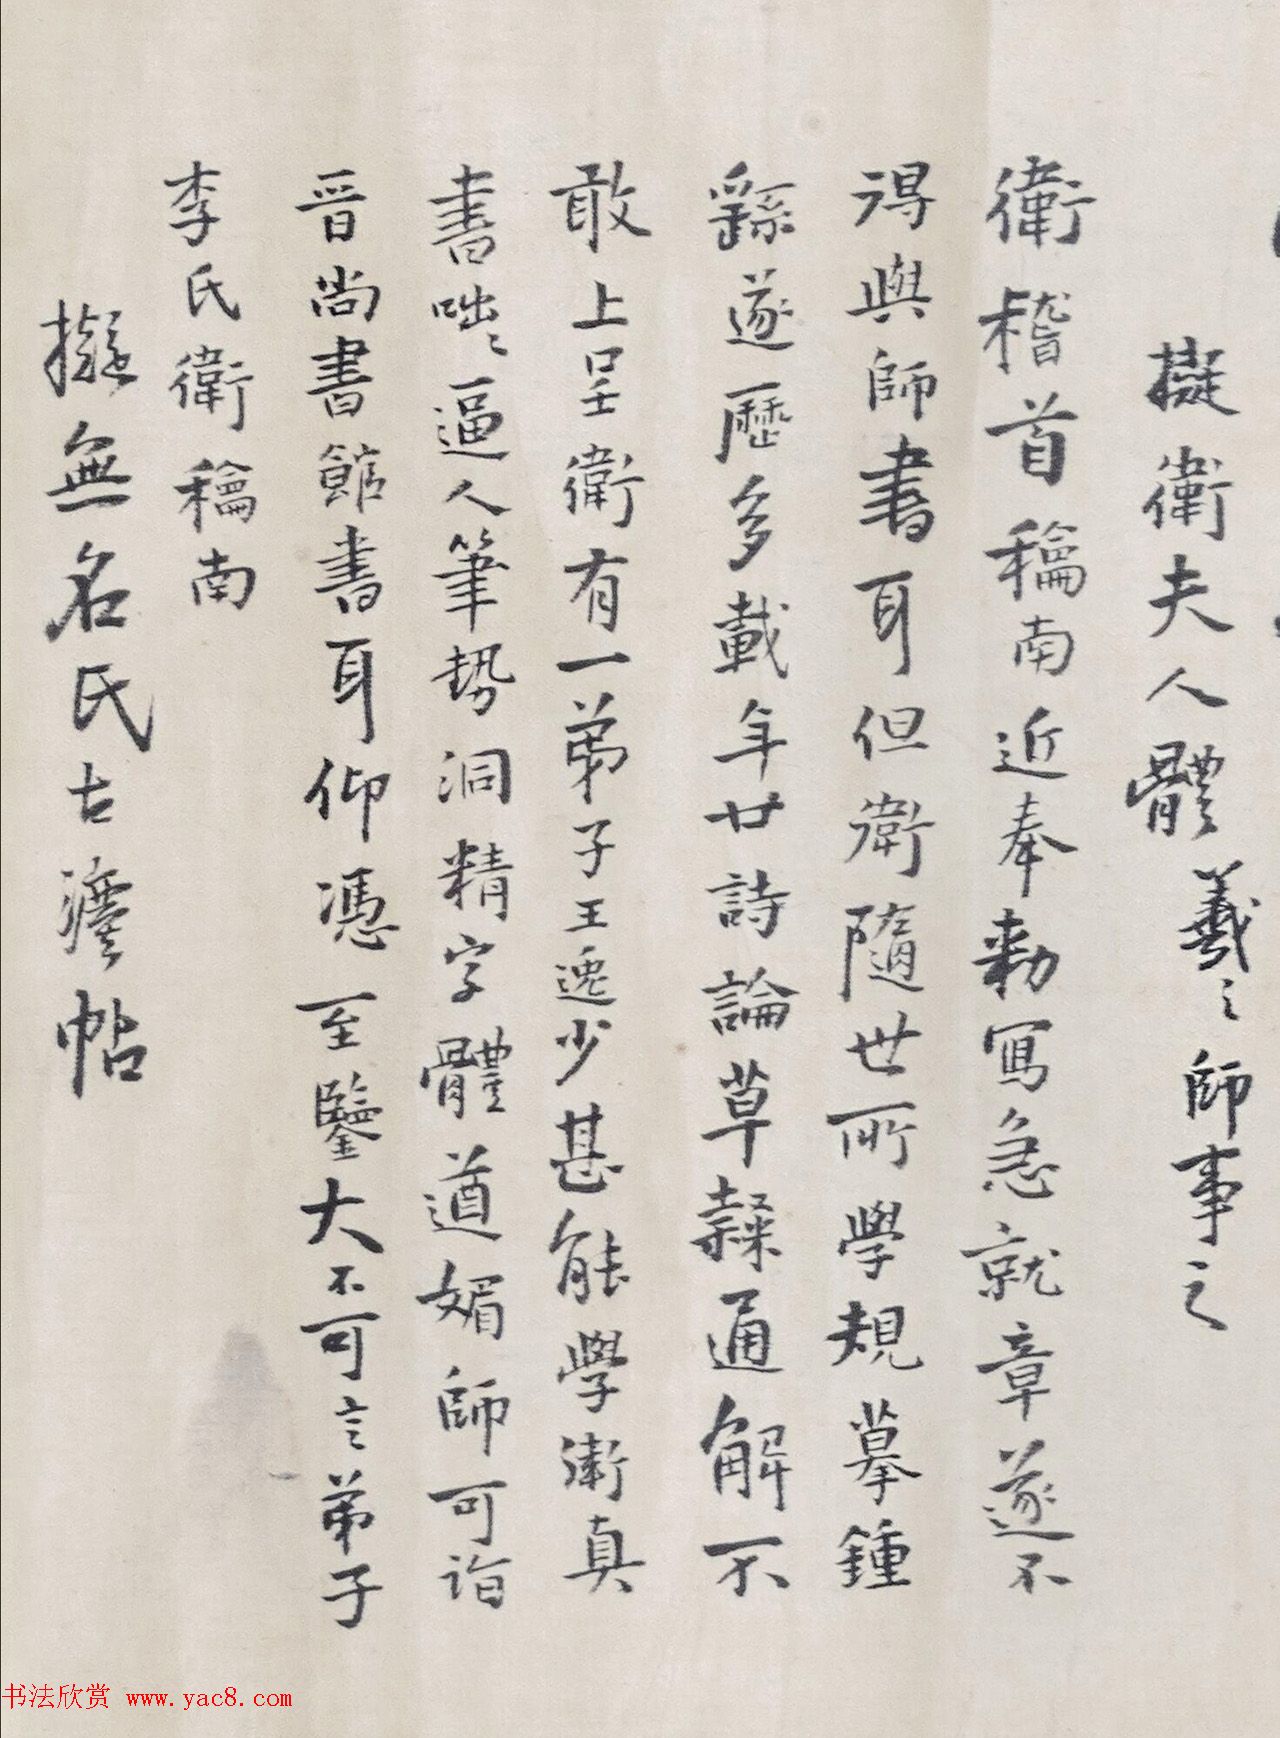 擬衛夫人體羲之師事之
衛稽首穐南近奉勅寫急就章遂不
得與師書耳但衛隨世所學規摹鍾
繇遂歷多載年廿詩論草隸通解不
敢上呈衛有一弟子王逸少甚能學衛真
書咄〻逼人筆勢洞精字體遒媚師可詣
晉尚書館書耳仰憑至鑒大不可言弟子
李氏衛穐南
擬無名氏古澹帖
书法欣赏 www.yac8.com